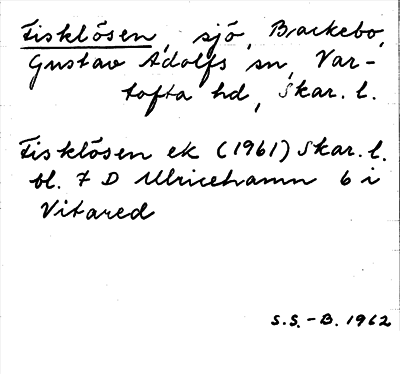 Fisklösen, sjö, Brackebo,
Gustav Adolfs sn, Var-
tofta hd, Skar. l.
Fisklösen ek (1961) Skar. l.
bl. 7 D Ulricehamn 6 i
Vitared
S.S.-B. 1962